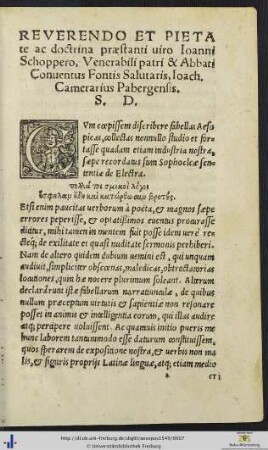 REVERENDO ET PIETA
te ac doctrina præstanti uiro Ioanni
Schoppero, Venerabili patri & Abbati
Conuentus Fontis Salutaris, Ioach.
Camerarius Pabergensis.
S. D.
CVm cœpissem describere fabellas Aeso
picas, collectas nonnullo studio et for
tasse quadam etiam industria nostra,
sæpe recordatus sum Sophocleæ sen
tentiæ de Electra.
πολλά τοι σμικροὶ λόγοι
Ἔσφηλαν ἤδη καὶ κατώρθωσαν βροτούς.
Etsi enim paucitas uerborum à poëta, et magnos sæpe
errores peperisse, & optatissimos euentus procurasse
dicitur, mihi tamen in mentem fuit posse idem uerè re-
cteq́; de exilitate et quasi nuditate sermonis perhiberi.
Nam de altero quidem dubium nemini est, qui unquam
audiuit, simpliciter obscœnas, maledicas, obtrectatorias
locutiones, quin hæ nocere plurimum soleant. Alterum
declarârunt istæ fabellarum narratiunculæ, de quibus
nullum præceptum uirtutis & sapientiæ non resonare
posset in animis & intelligentia eorum, qui illas audire
atq; percipere uoluissent. Ac quamuis initio pueris me
hunc laborem tantummodo esse daturum constituissem,
quos sperarem de expositione nostra, & uerbis non ma
lis, & figuris proprijs Latinæ linguæ, atq; etiam medio
http://dl.ub.uni-freiburg.de/diglit/aesopus1549/0007
© Universitätsbibliothek Freiburg